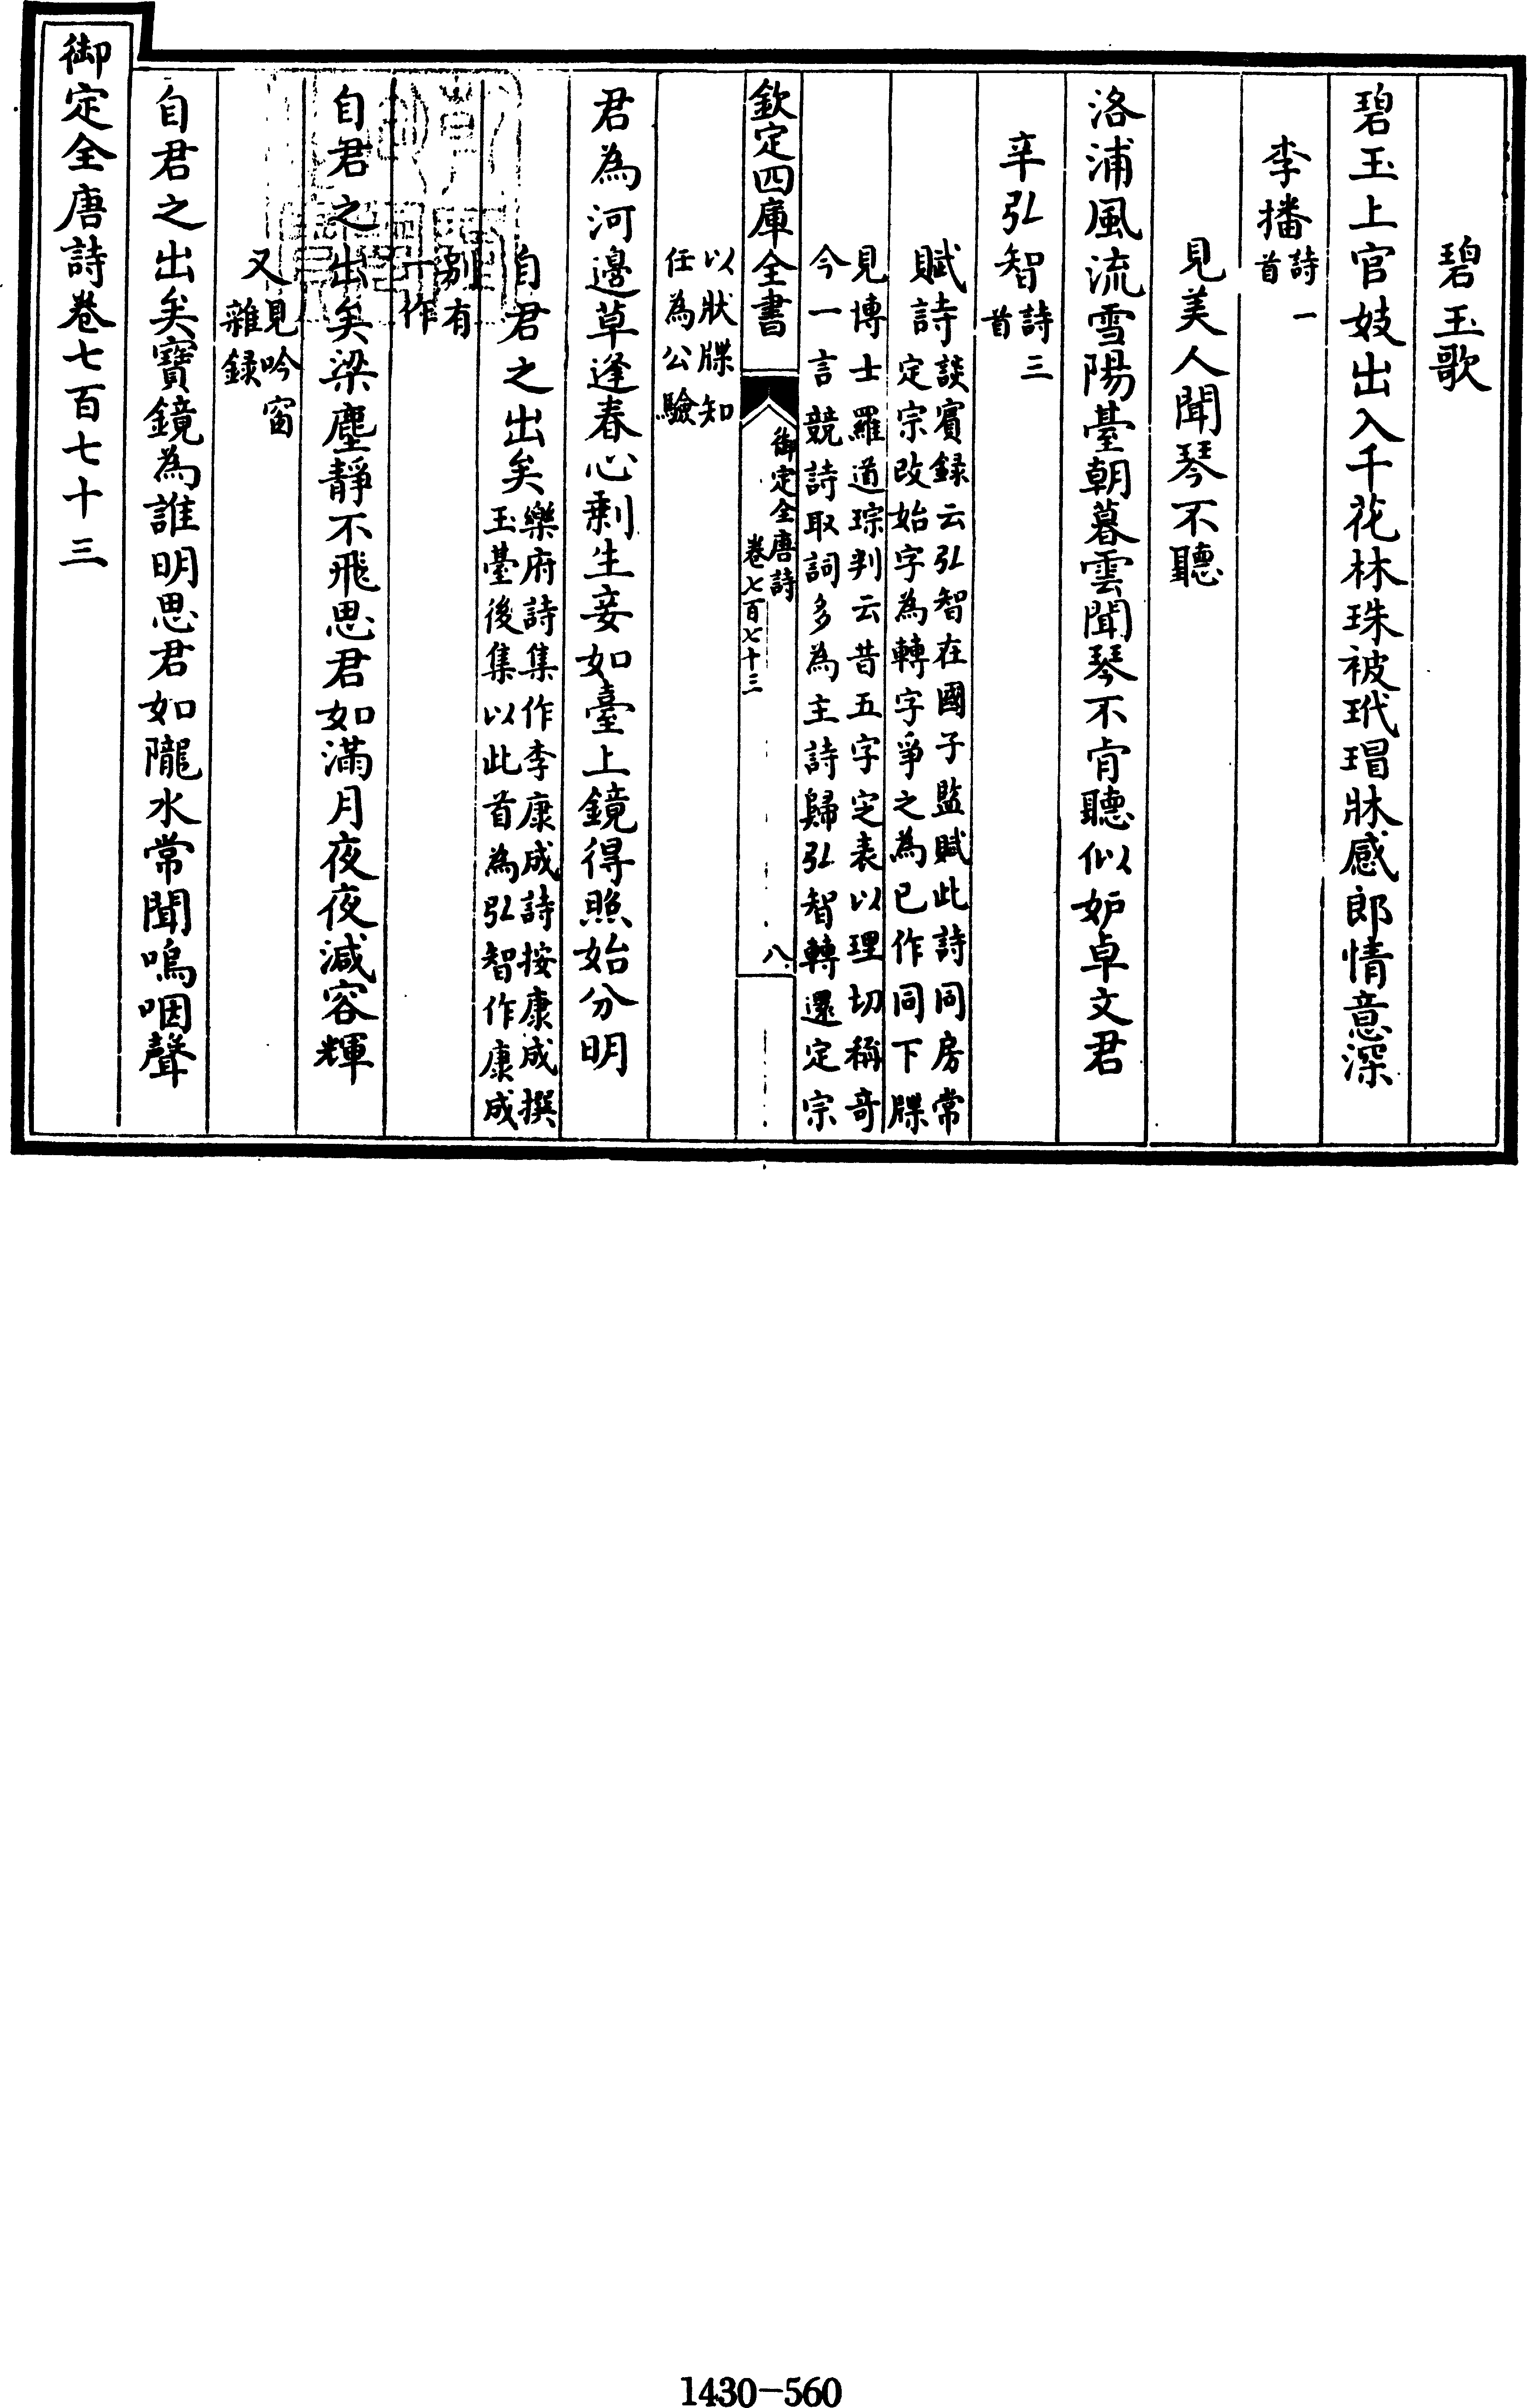 碧玉歌
碧玉上官妓出入千花林珠被玳瑁牀感郎情意深
李播詩一首
見美人聞琴不聽
洛浦風流雪陽臺朝暮雲聞琴不肯聽似妒卓文君
辛弘智詩三首
賦詩談賓録云弘智在國子監賦此詩同房常定宗改始字為轉字爭之為已作同下牒
見博士羅道琮判云昔五字定表以理切稱奇今一言競詩取詞多為主詩歸弘智轉還定宗
欽定四庫全書
御定全唐詩
卷七百七十三
八
以狀牒知任為公驗
君為河邊草逢春心剰生妾如臺上鏡得照始分明
自君之出矣樂府詩集作李康成詩按康成撰玉臺後集以此首為弘智作康成
別有一作
自君之出矣梁塵靜不飛思君如滿月夜夜減容輝
又見吟窗雜録
自君之出矣寶鏡為誰明思君如隴水常聞嗚咽聲
御定全唐詩卷七百七十三
1430-560